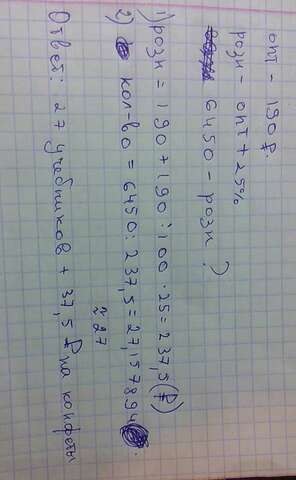 опт - 190 ₽.
розн - опт + 25%
6450 - розн ?
1) розн = 190 + 190 : 100 · 25 = 237,5 (₽)
2) кол-во = 6450 : 237,5 = 27,157894
≈ 27
Ответ: 27 учебников + 37,5 ₽ на конфеты